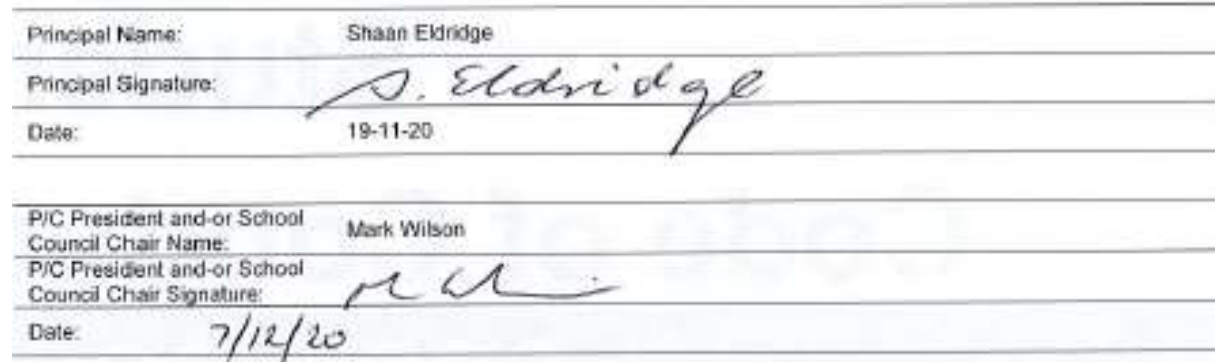 Principal Name: Shaan Eldridge
Principal Signature: S. Eldridge
Date: 19-11-20
P/C President and-or School
Council Chair Name: Mark Wilson
P/C President and-or School
Council Chair Signature:
Date: 7/12/20